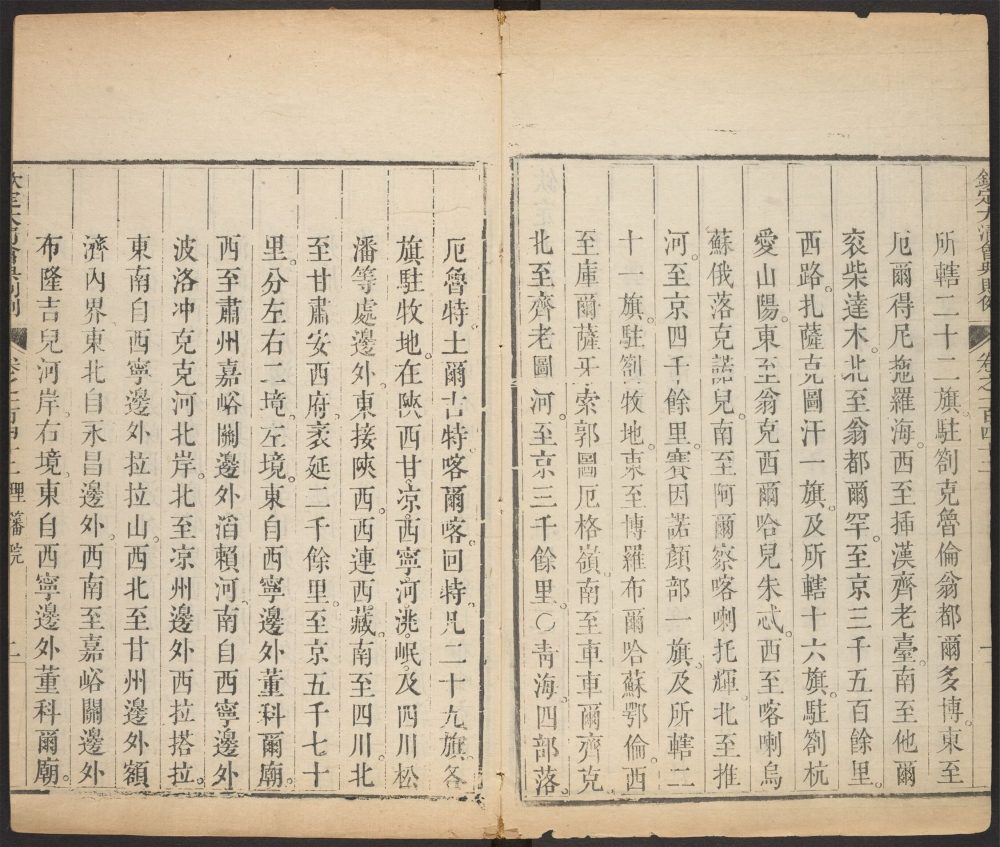 欽定大清會典則例 卷之一百四十二
所轄二十二旗。駐劄克魯倫翁都爾多博。東至
厄爾得尼拖羅海。西至插漢齊老臺。南至他爾
衮柴達木。北至翁都爾罕。至京三千五百餘里。
西路。扎薩克圖汗一旗。及所轄十六旗。駐劄杭
愛山陽。東至翁克西爾哈兒朱忒。西至喀喇烏
蘇俄落克諾兒。南至阿爾察喀喇托輝。北至推
河。至京四千餘里。賽因諾顏部一旗。及所轄二
十一旗。駐劄牧地。東至博羅布爾哈蘇鄂倫。西
至庫爾薩牙索郭圖厄格嶺。南至車車爾齊克。
北至齊老圖河。至京三千餘里。○青海四部落。
厄魯特。土爾古特。喀爾喀。回特。凡二十九旗。各
旗駐牧地。在陝西甘凉。西寧。河洮岷。及四川松
潘等處邊外。東接陝西。西連西藏。南至四川。北
至甘肅安西府。袤延二千餘里。至京五千七十
里。分左右二境。左境。東自西寧邊外董科爾廟。
西至肅州嘉峪關邊外滔賴河。南自西寧邊外
波洛冲克克河北岸。北至凉州邊外西拉搭拉。
東南自西寧邊外拉拉山。西北至甘州邊外額
濟內界。東北自永昌邊外。西南至嘉峪關邊外
布隆吉兒河岸。右境。東自西寧邊外董科爾廟。
欽定大清會典則例 卷之一百四十二 理藩院